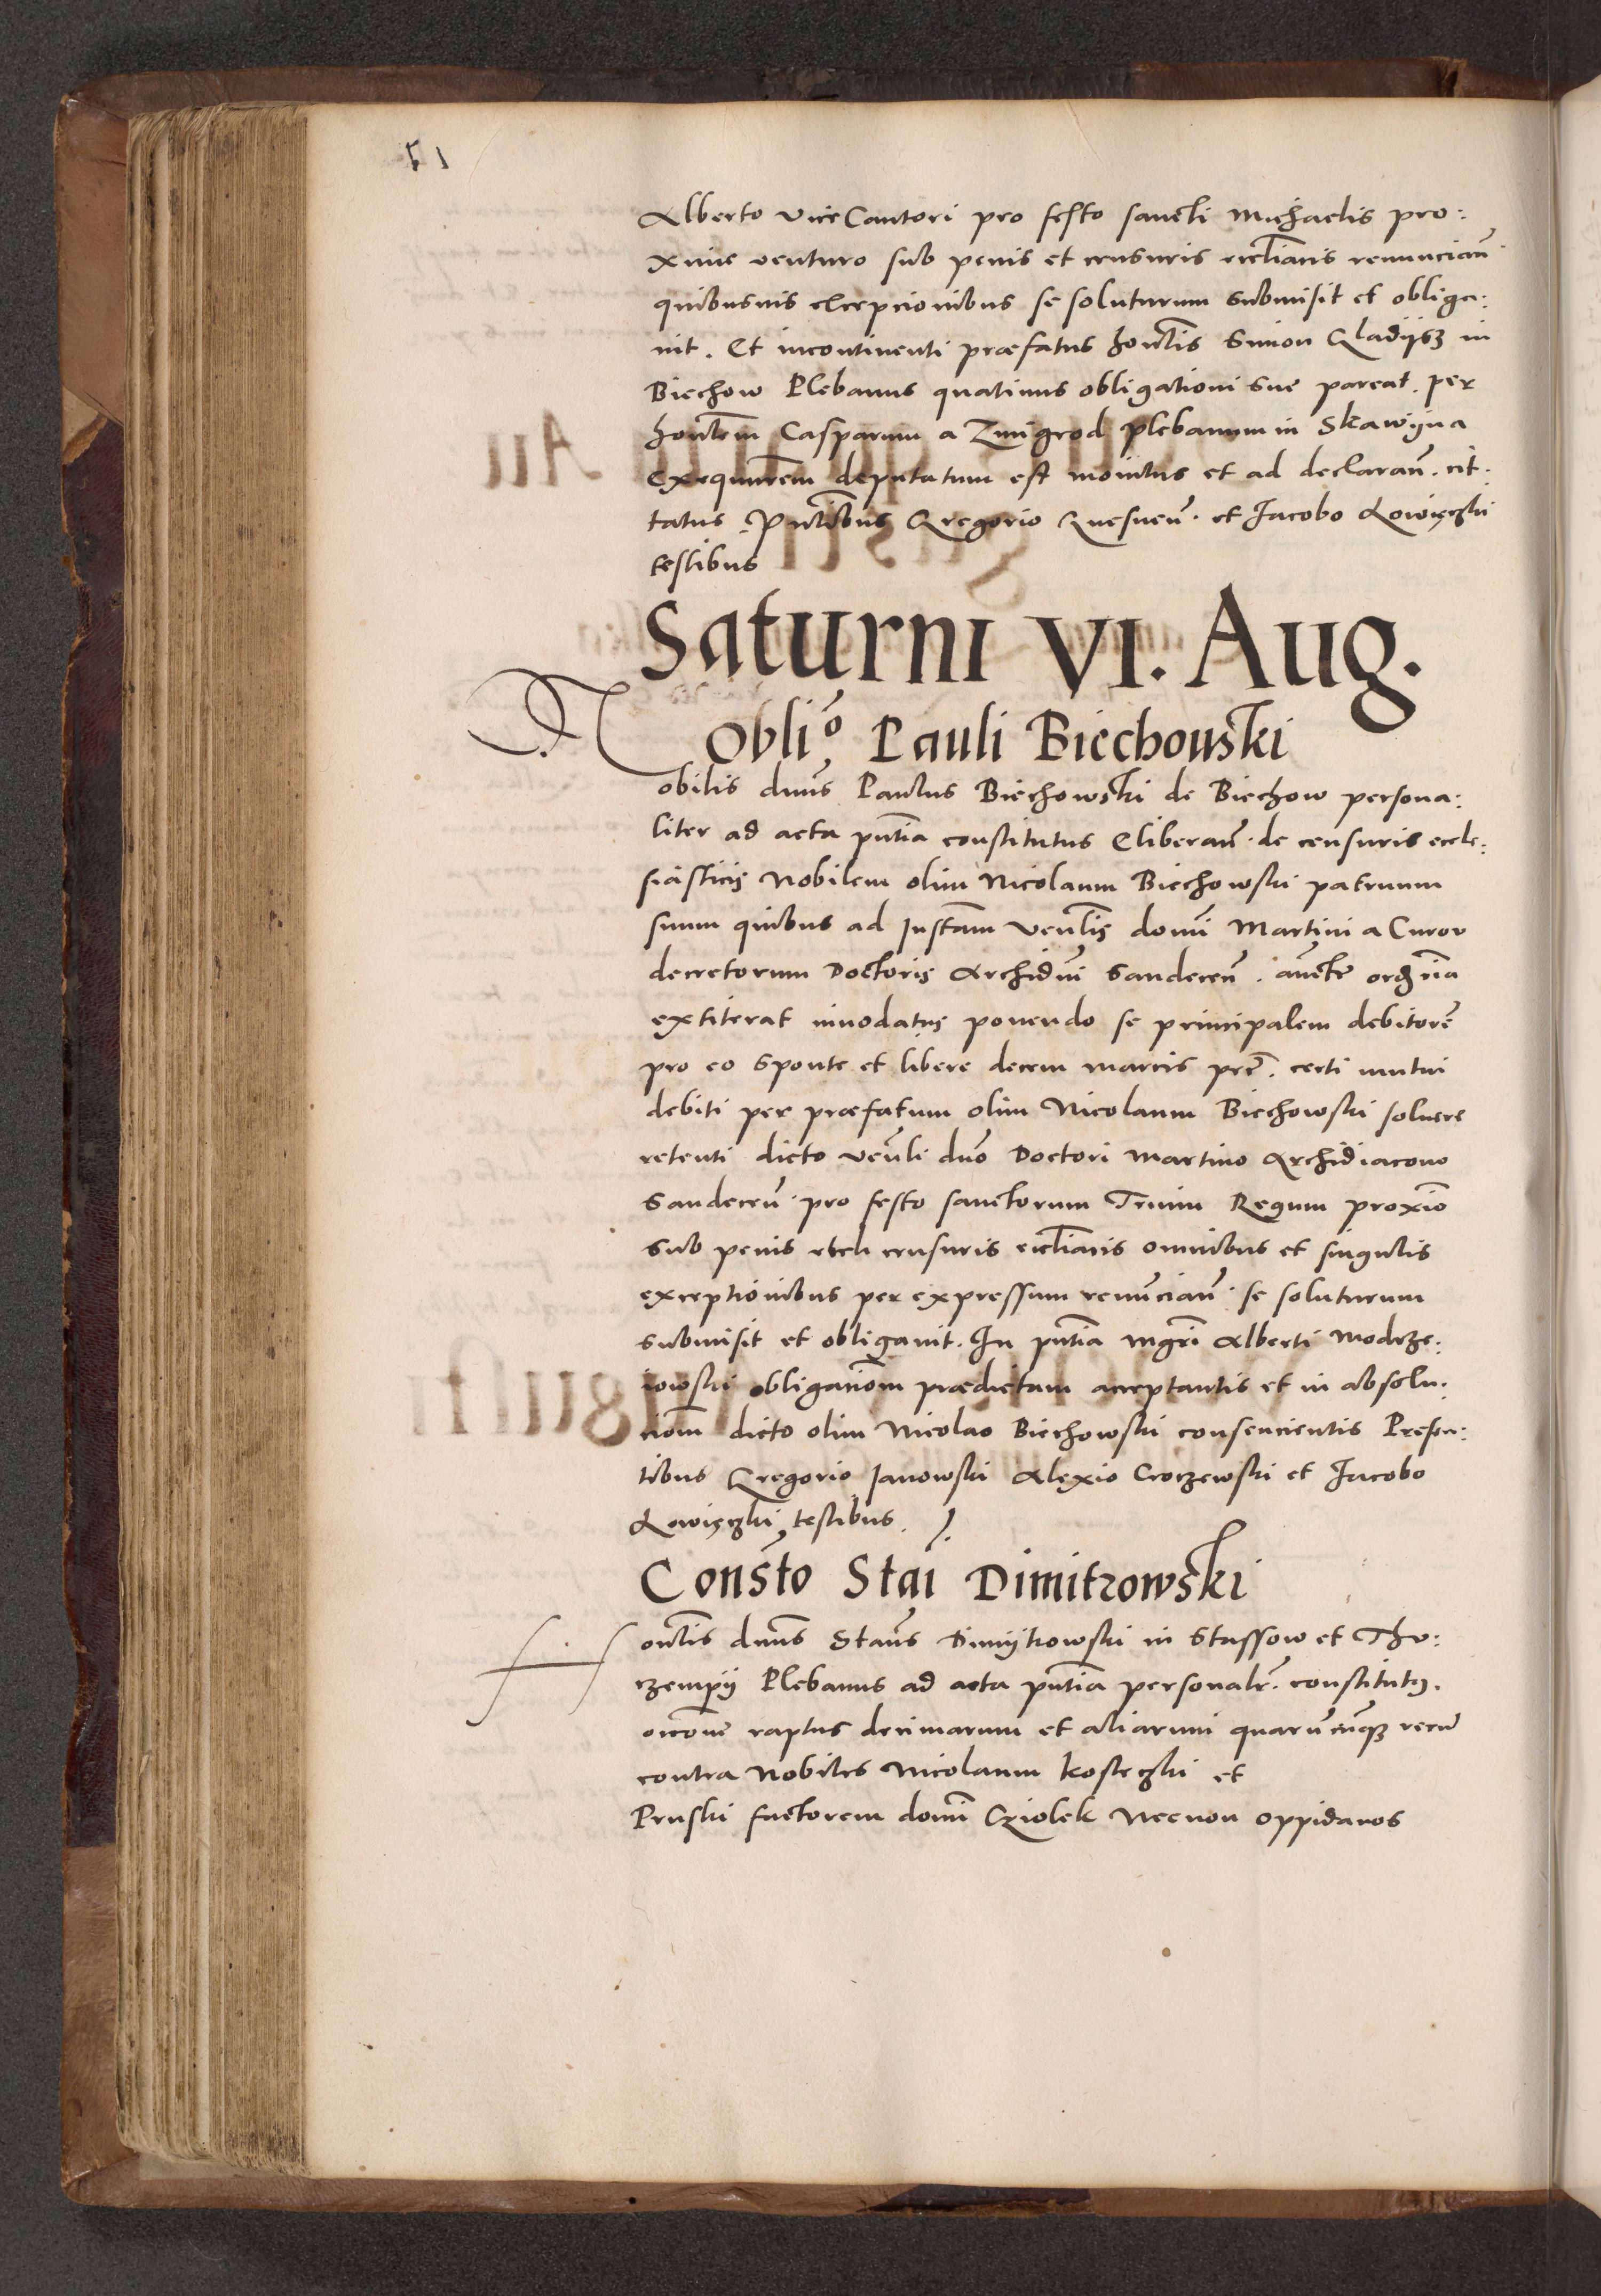 Alberto ViceCantori pro festo sancti Michaelis pro:
xime venturo sub penis et censuris eccliacis renuncian̄
quibusuis excepcionibus se soluturum submisit et obliga:
uit. Et incontinenti præfatus hon̄lis Simon Gladijsz in
Biechow Plebanus quatinus obligationi sue pareat. per
hon̄lem Casparum a Zmigrod plebanum in Skawijna
exequut̄rem deputatum est monitus et ad declaran̄. cit.
tatus. Pn̄tibus Gregorio et Jacobo Lowięczki
testibus
Saturni VI. Aug.
Obli⁰ Pauli Biechowski
Nobilis dn̄us Paulus Biechowski de Biechow persona:
liter ad acta pn̄tia constitutus Eliberan̄. de censuris eccle:
siasticis Nobilem olim Nicolaum Biechowski patruum
suum quibus ad Instam̄ Ven̄lis domī Martini a Curow
decretorum Doctoris Archidn̄i Sandecen̄. aucte ordria
extiterat innodatus ponendo se principalem debitorē
pro eo sponte et libere decem marcis pec̄. certi mutui
debiti per præfatum olim Nicolaum Biechowski soluere
retenti dicto ven̄li dn̄o Doctori Martino Archidiacono
Sandecen̄. pro festo sanctorum Trium Regum proxīo
sub penis et censuris eccliacis omnibus et singulis
exceptionibus per expressum renuncian̄. se soluturum
submisit et obligauit. In pn̄tia mgr̄i Alberti Modrze:
iowski obligacion̄em prædictam acceptantis et in absolu:
cion̄em dicto olim Nicolao Biechowski consencientis Presen:
tibus Gregorio Janowski Alexio Croczewski et Jacobo
Lowięczki testibus.
Consto Stai Dimitrowski
Hon̄lis dn̄us Stan̄s Dimijtrowski in Stassow et Tho:
czempij Plebanus ad acta pn̄tia personalr̄. constitutus.
occōne raptus decimarum et aliarum quarūcunq rerū
contra Nobiles Nicolaum Kosteczki et
Pruski factorem domī Cziolek Necnon oppidanos